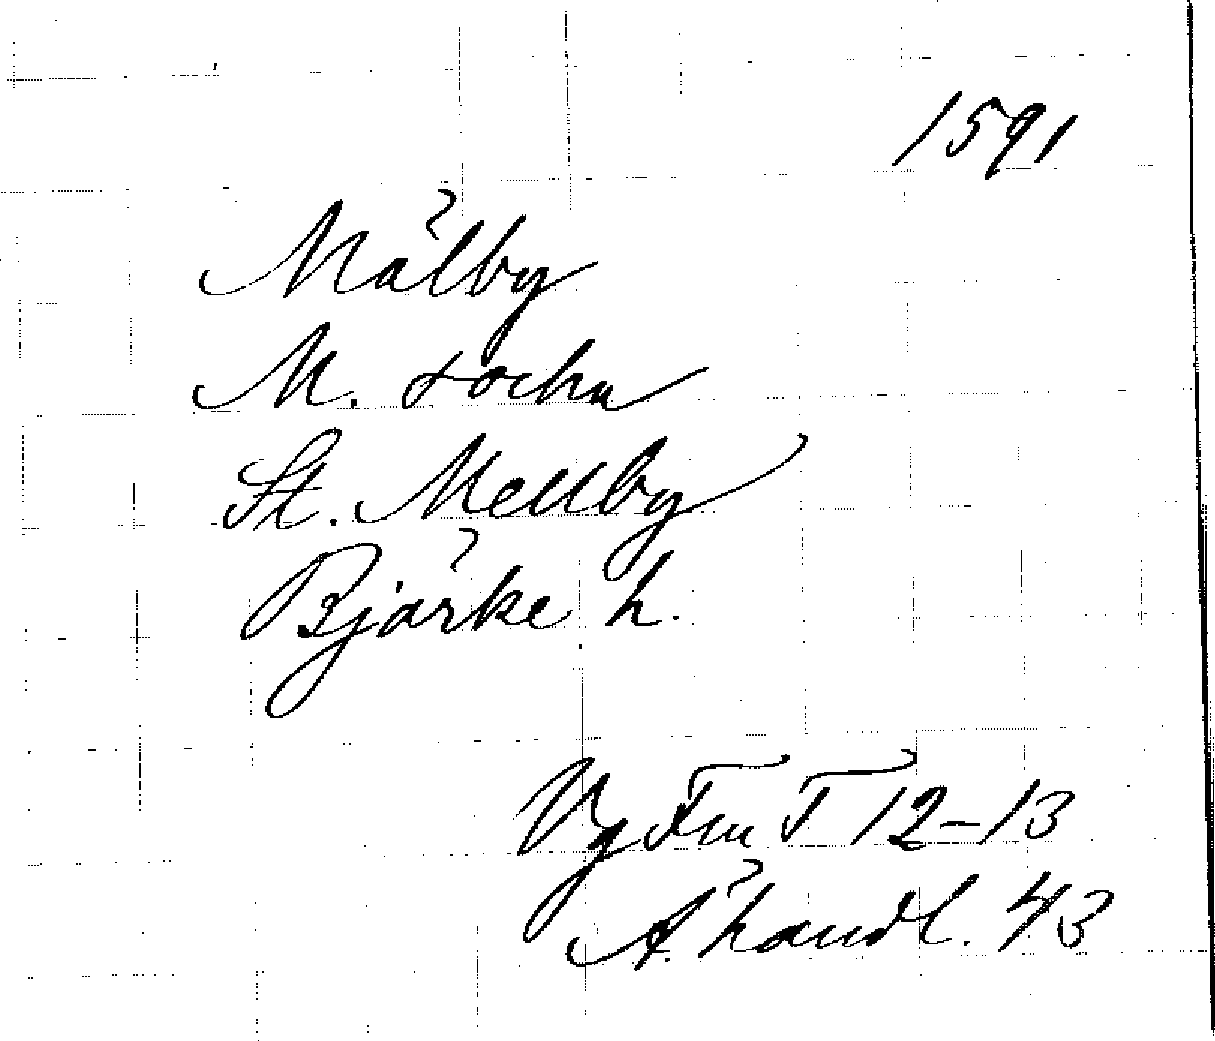 1591
Målby
M. socku
St. Mellby
Bjärke h.
Vg Fm T 12-13
Åhandl. 43